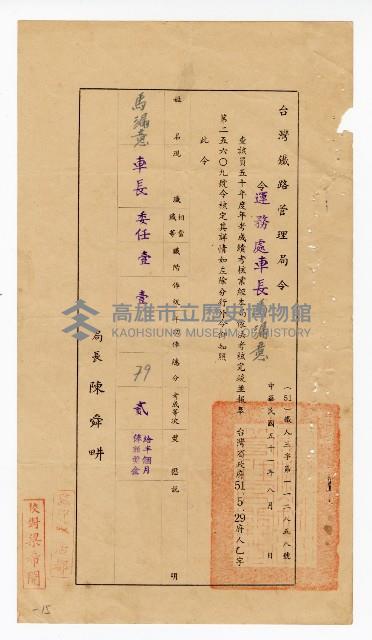 台灣鐵路管理局令
(51)鐵人三字第一一二八五八號
中華民國五十一年八月 日
令運務處車長馮滿意
查該員五十年度年考成績考核案經本局依法考核完竣並報奉 台灣省政府51.5.29府人乙字
第二五六〇九號令核定其詳情如左除分行外令仰知照
此令
姓名 現職 相當職等 職階 俸級 俸 總分 考成等次 獎懲 說明
馮滿意 車長 委任壹 壹 79 貳 給半個月俸額獎金
局長 陳舜畊
校對梁希聞
高雄市立歷史博物館
KAOHSIUNG MUSEUM OF HISTORY
-15